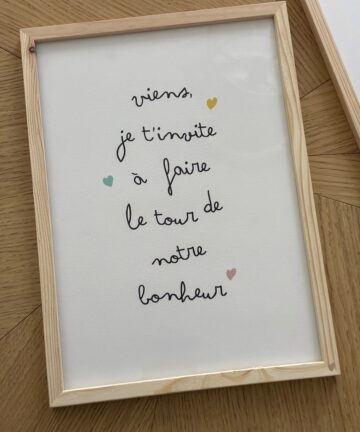 viens,
je t'invite
à faire
le tour de
notre
bonheur